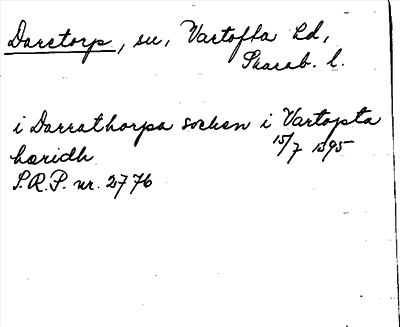 Daretorp, sn, Vartofta hd,
Skarab. l.
i Darrathorpa socken i Vartopta
hæridh 15/7 1395
S.R.P. nr. 2776